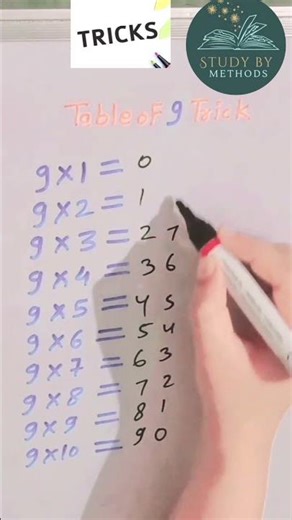 TRICKS
STUDY BY
METHODS
Table of 9 Trick
9×1=0
9×2=1
9×3=27
9×4=36
9×5=45
9×6=54
9×7=63
9×8=72
9×9=81
9×10=90